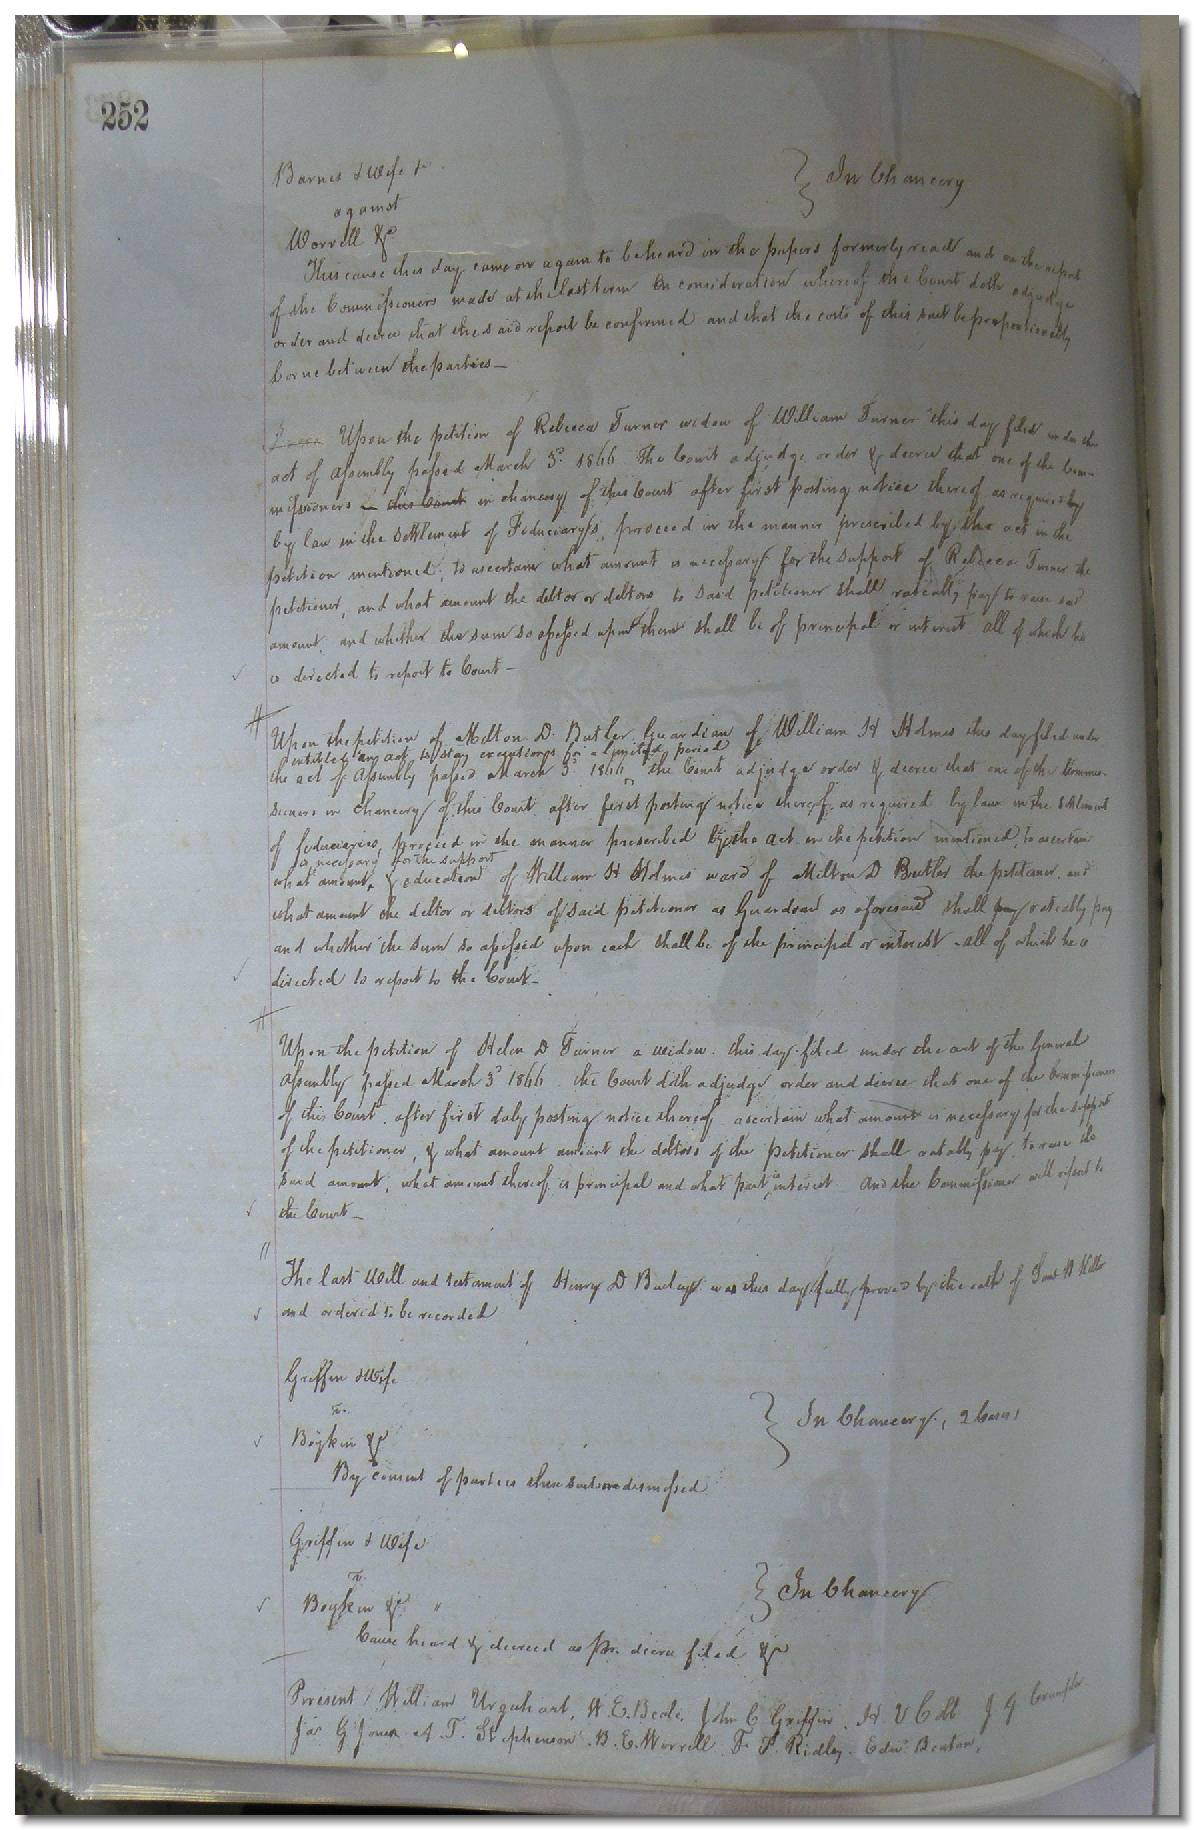 252
Barnes & Wife &c
against
Worrell &c
In Chancery
This cause this day came on again to be heard on the papers formerly read and on the report
of the Commissioners made at the last term On consideration whereof the Court doth adjudge
order and decree that the said report be confirmed and that the costs of this suit be proportionably
borne between the parties—
Upon the petition of Rebecca Turner widow of William Turner this day filed under the
act of Assembly passed March 3d 1866 The Court adjudge order & decree that one of the Com-
missioners in this Court in chancery of this Court after first posting notice thereof as required by
by law in the settlement of Fiduciarys, proceed in the manner prescribed by the act in the
petition mentioned, to ascertain what amount is necessary for the support of Rebecca Turner the
petitioner, and what amount the debtor or debtors to said petitioner shall rateably pay to raise said
amount, and whether the sum so assessed upon them shall be of principal or interest all of which he
is directed to report to Court—
Upon the petition of Milton D. Butler Guardian of William H Holmes this day filed under
entitled an act to stay executions for a limited period
the act of Assembly passed March 3d 1866 the Court adjudge order & decree that one of the Commis-
sioners in Chancery of this Court after first posting notice thereof as required by law in the settlement
of fiduciaries, proceed in the manner prescribed by the act in the petition mentioned, to ascertain
is necessary for the support
what amount & education of William H Holmes ward of Milton D Butler the petitioner, and
what amount the debtor or debtors of said petitioner as Guardian as aforesaid shall pay rateably pay
and whether the sum so assessed upon each shall be of the principal or interest - all of which he is
directed to report to the Court—
Upon the petition of Helen D Turner a widow this day filed under the act of the General
Assembly passed March 3d 1866 the Court doth adjudge order and decree that one of the Commissioners
of this Court after first duly posting notice thereof ascertain what amount is necessary for the support
of the petitioner, & what amount amount the debtors of the petitioner shall ratably pay to raise the
said amount, what amount thereof is principal and what part is interest And the Commissioner will report to
the Court—
The last Will and testament of Henry D this day fully proved by the oath of
and ordered to be recorded
Griffin & Wife
vs.
Boykin &c
In Chancery, 2 Causes
By consent of parties these suits are dismissed
Griffin & Wife
vs.
Boykin &c
In Chancery
Cause heard & decreed as pr. decree filed &c
Present William Urquhart, H. E. Beale, John C Griffin, H V Cobb J G Crumpler
Jas G Jones A. T. Stephenson B. E. Worrell F. P. Ridley. Edwd Benton,